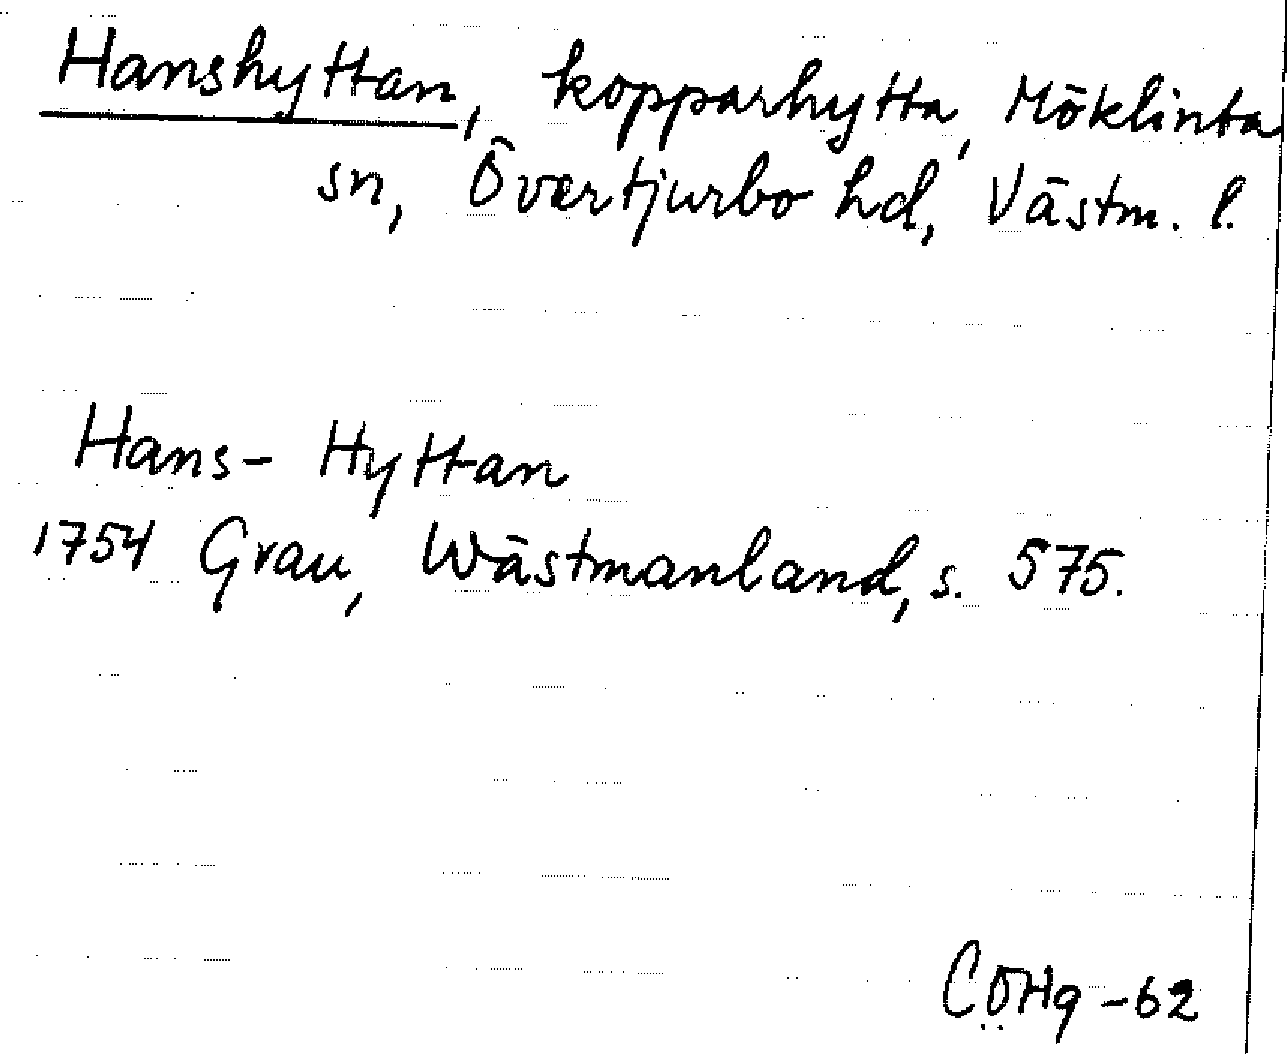 Hanshyttan, kopparhytta, Möklinta
sn, Övertjurbo hd, Västm. l.
Hans-Hyttan
1754 Grau, Wästmanland, s. 575.
CÖHg -62